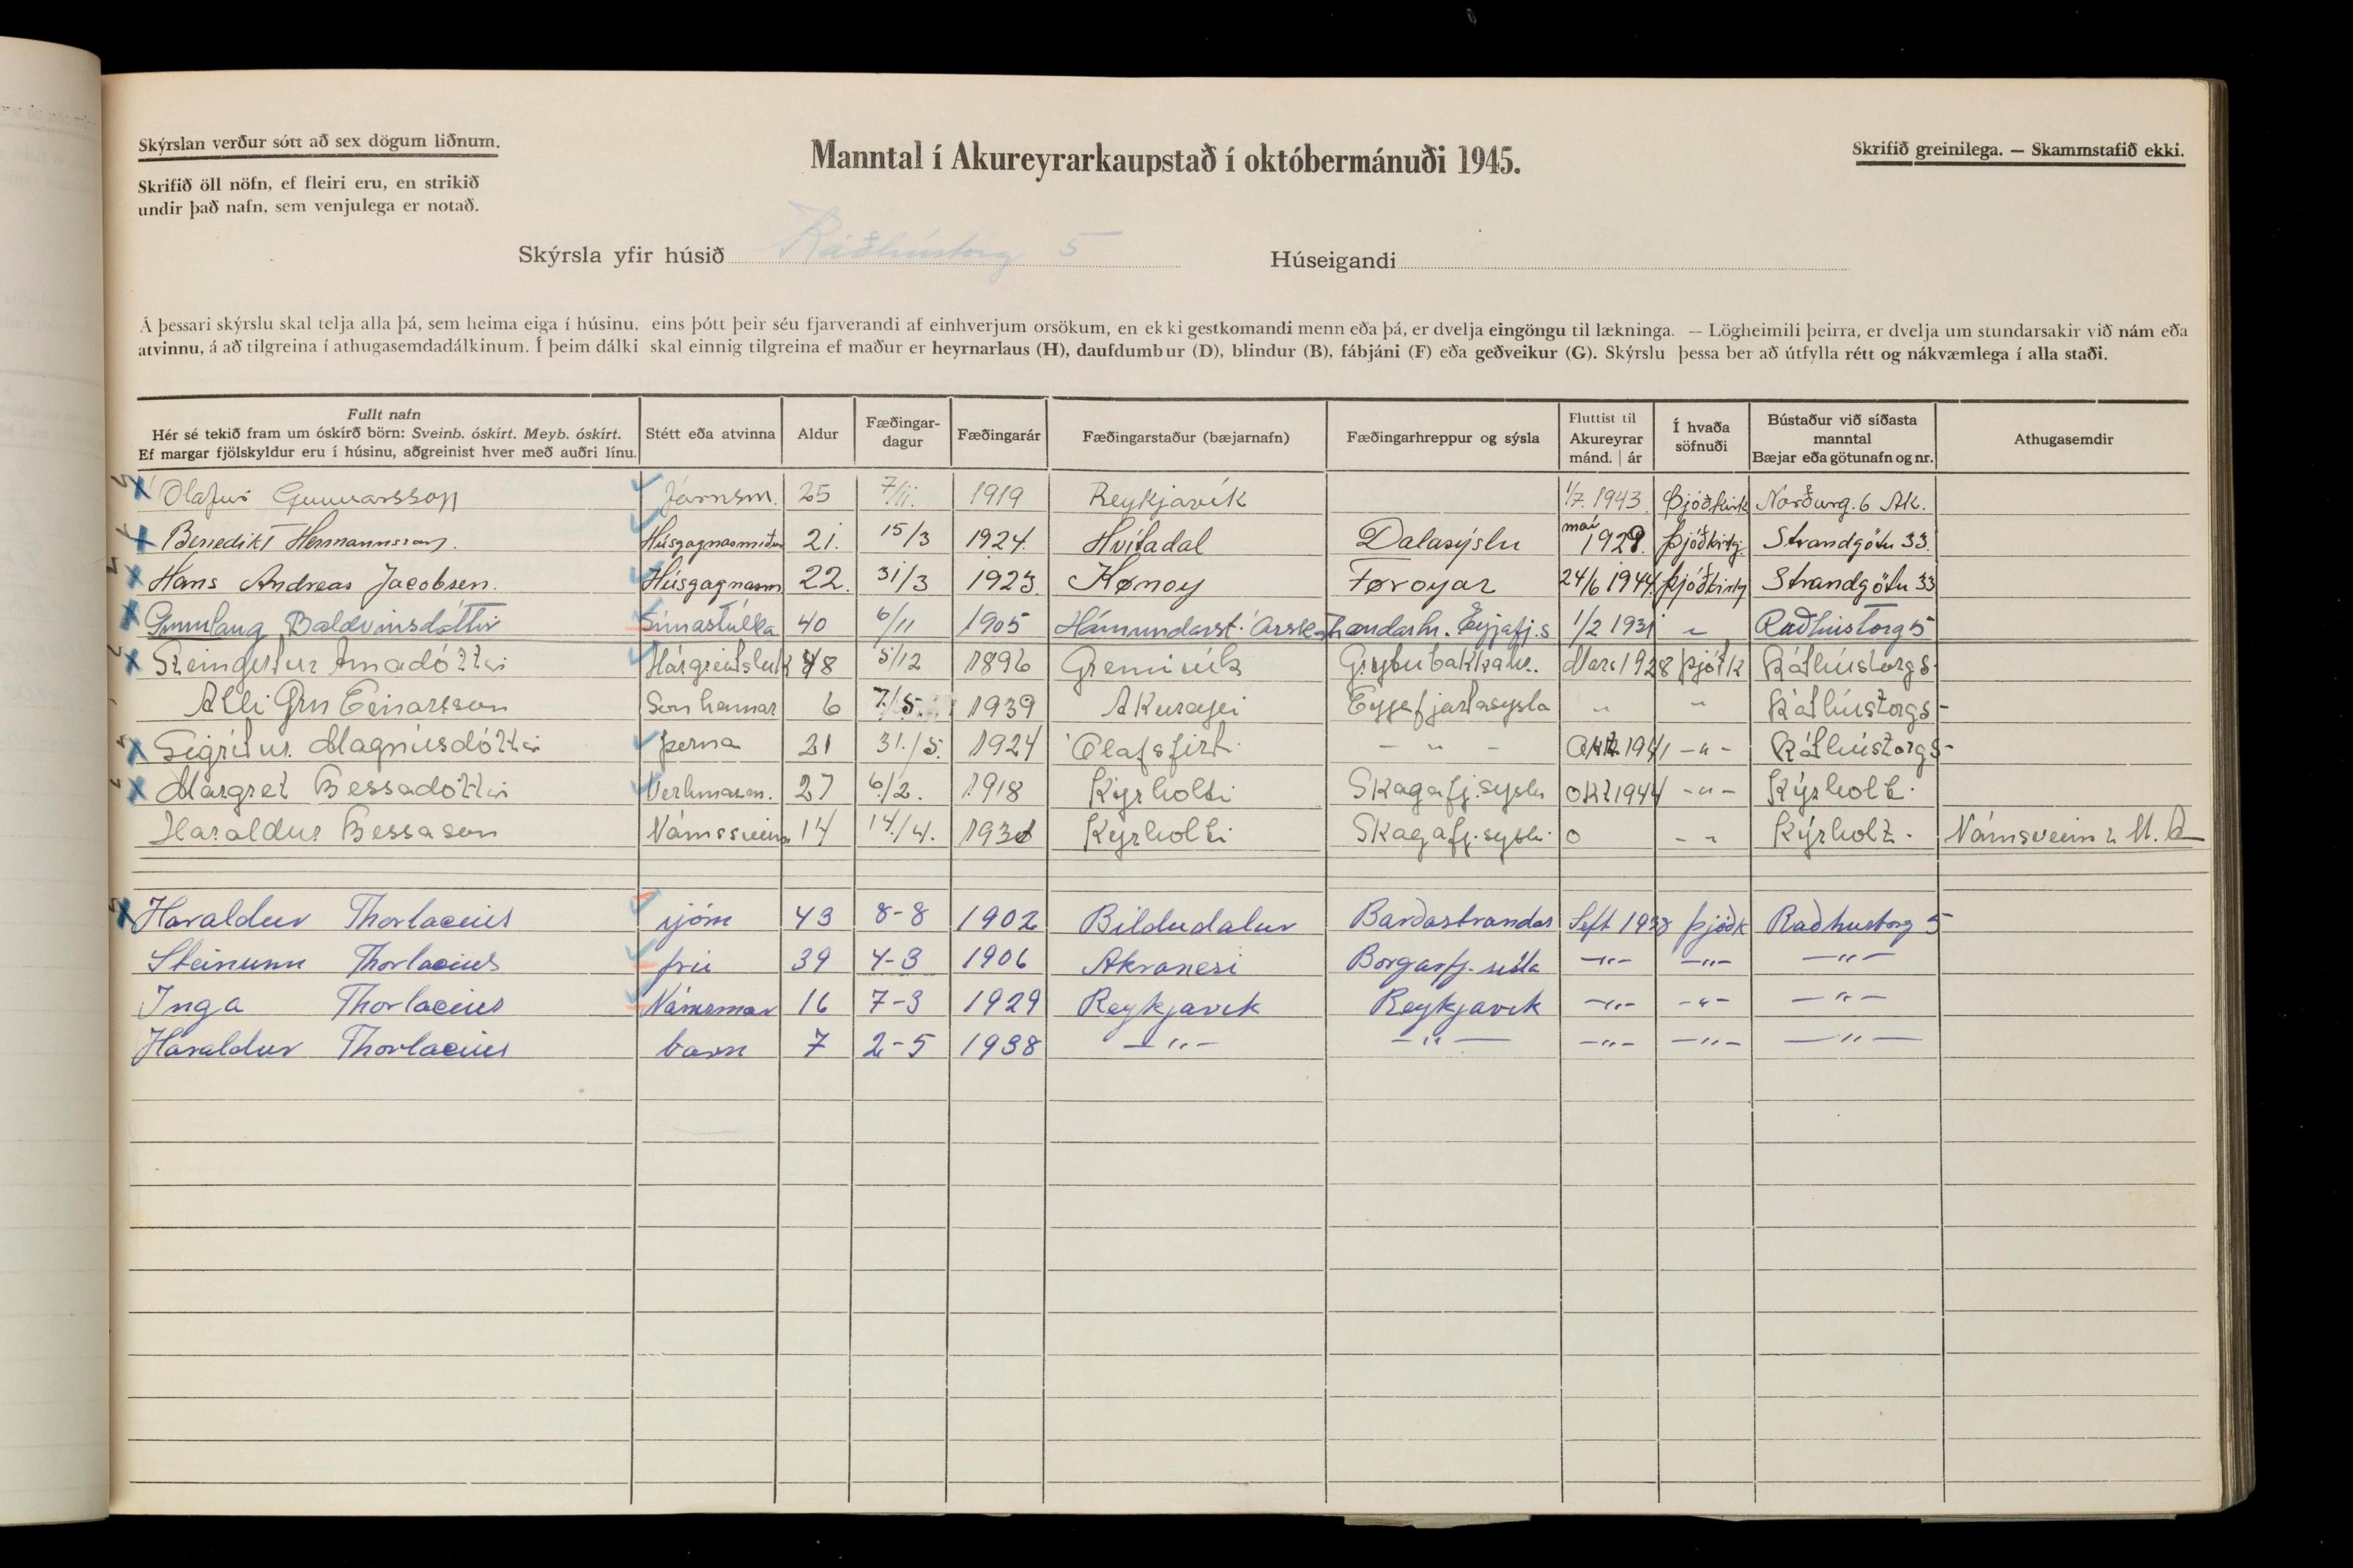 Skýrslan verður sótt að sex dögum liðnum.
Manntal í Akureyrarkaupstað í októbermánuði 1945.
Skrifið greinilega. — Skammstafið ekki.
Skrifið öll nöfn, ef fleiri eru, en strikið
undir það nafn, sem venjulega er notað.
Skýrsla yfir húsið Ráðhústorg 5 Húseigandi
Á þessari skýrslu skal telja alla þá, sem heima eiga í húsinu, eins þótt þeir séu fjarverandi af einhverjum orsökum, en ekki gestkomandi menn eða þá, er dvelja eingöngu til lækninga. — Lögheimili þeirra, er dvelja um stundarsakir við nám eða
atvinnu, á að tilgreina í athugasemdadálkinum. Í þeim dálki skal einnig tilgreina ef maður er heyrnarlaus (H), daufdumbur (D), blindur (B), fábjáni (F) eða geðveikur (G). Skýrslu þessa ber að útfylla rétt og nákvæmlega í alla staði.
Fullt nafn
Hér sé tekið fram um óskírð börn: Sveinb. óskírt. Meyb. óskírt.
Ef margar fjölskyldur eru í húsinu, aðgreinist hver með auðri línu.
Stétt eða atvinna
Aldur
Fæðingar-
dagur
Fæðingarár
Fæðingarstaður (bæjarnafn)
Fæðingarhreppur og sýsla
Fluttist til
Akureyrar
mánd. | ár
Í hvaða
söfnuði
Bústaður við síðasta
manntal
Bæjar eða götunafn og nr.
Athugasemdir
Ólafur Gunnarsson Járnsm. 25 7/11. 1919 Reykjavík 1/7. 1943. Þjóðkirk Norðurg. 6 Ak.
Benedikt Hermannsson. Húsgagnasmiður 21. 15/3 1924. Hvítadal Dalasýslu maí 1929. Þjóðkirkj. Strandgötu 33.
Hans Andreas Jacobsen. Húsgagnasm 22. 31/3 1923. Kønoy Føroyar 24/6 1944. Þjóðkirkj Strandgötu 33
Gunnlaug Baldvinsdóttir Símastúlka 40 6/11 1905 Hámundarst. Árskógstrandarhr. Eyjafj.s 1/2 1931 " Raðhústorg 5
Steingerður Árnadóttir 48 5/12 1896 Grenivík Grýtubakkahr. Mars 1928 Þjóðk Ráðhústorg 5
Atli Örn Einarsson Son hennar 6 7./5. 1939 Akureyri Eyjafjarðasysla " " Ráðhústorg 5
Sigríður Magnúsdóttir þerna 21 31./5. 1924 Ólafsfirði - " - Okt 1941 - " - Ráðhústorg 5
Margret Bessadóttir Verkmaren. 27 6./2. 1918 Kýrholti Skagafj.syslu Okt 1944 - " - Kýrholt.
Haraldur Bessason Námssveinn 14 14./4. 1931 Kyrholti Skagafj.syslu 0 - " Kýrholt. Námsveinn í M. A
Haraldur Thorlacius sjóm 43 8-8 1902 Bíldudalur Barðastrandas Sept 1938 Þjóðk Raðhustorg 5
Steinunn Thorlacius frú 39 4-3 1906 Akranesi Borgarfj. sísla -"- -"- -"-
Inga Thorlacius Námsmær 16 7-3 1929 Reykjavik Reykjavik -"- -"- -"-
Haraldur Thorlacius barn 7 2-5 1938 -"- -"- -"- -"- -"-